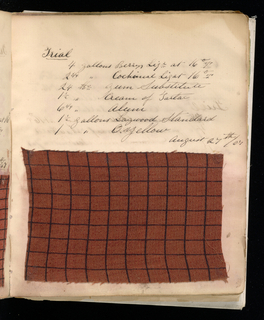 Trial
4 gallons Berry Liqr at 16
2 " Cochineal Liqr at 16
24 lbs Gum Substitute
1 " Cream of Tartar
6 " Alum
1 gallons Logwood Standard
1 "
August 27th